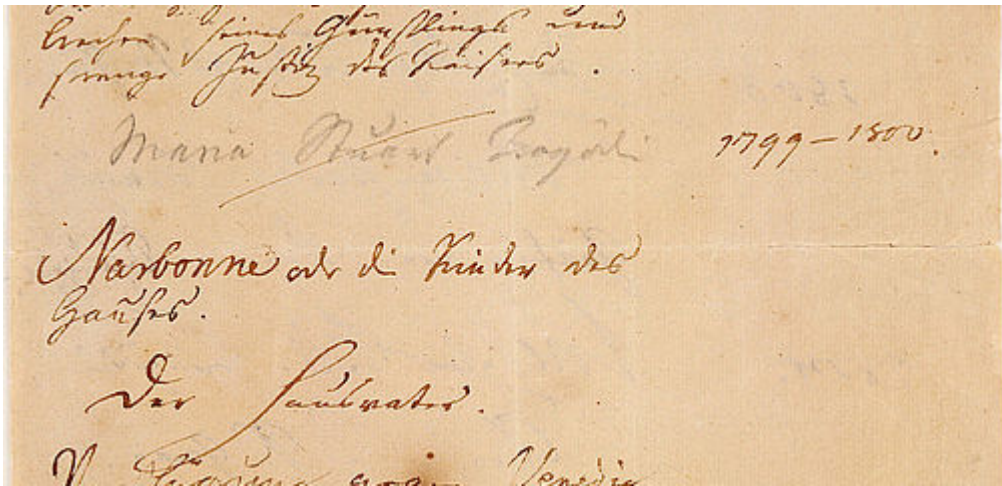 seines Günstlings und
strenge Justiz des Kaisers.
Maria Stuart Tragödie 1799–1800.
Narbonne oder die Kinder des
Hauses.
Der Hausvater.
Venedig